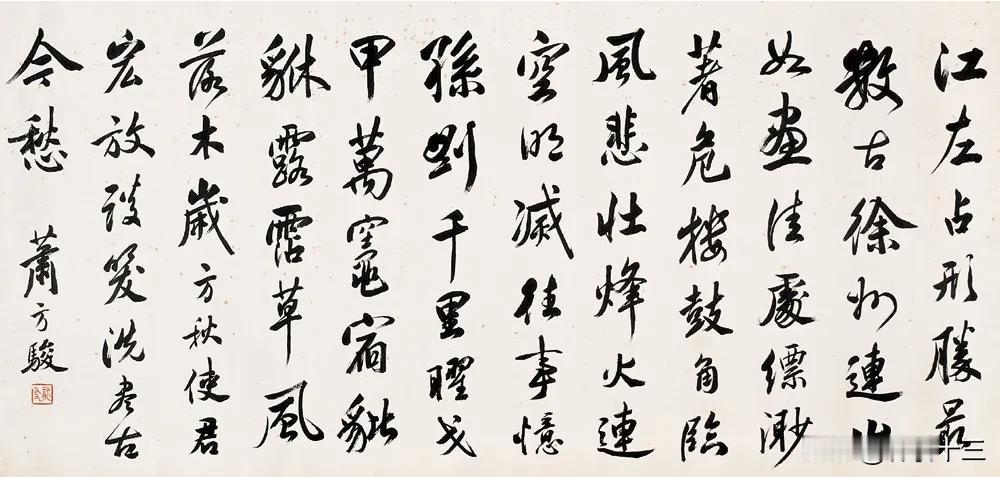 江左占形勝最
數古徐州連山
如畫佳處縹渺
著危樓鼓角臨
風悲壯烽火連
空明滅往事憶
孫劉千里曜戈
甲萬竈宿貔
貅露霑草風
落木歲方秋使君
宏放談笑洗盡古
今愁
蕭方駿
十三